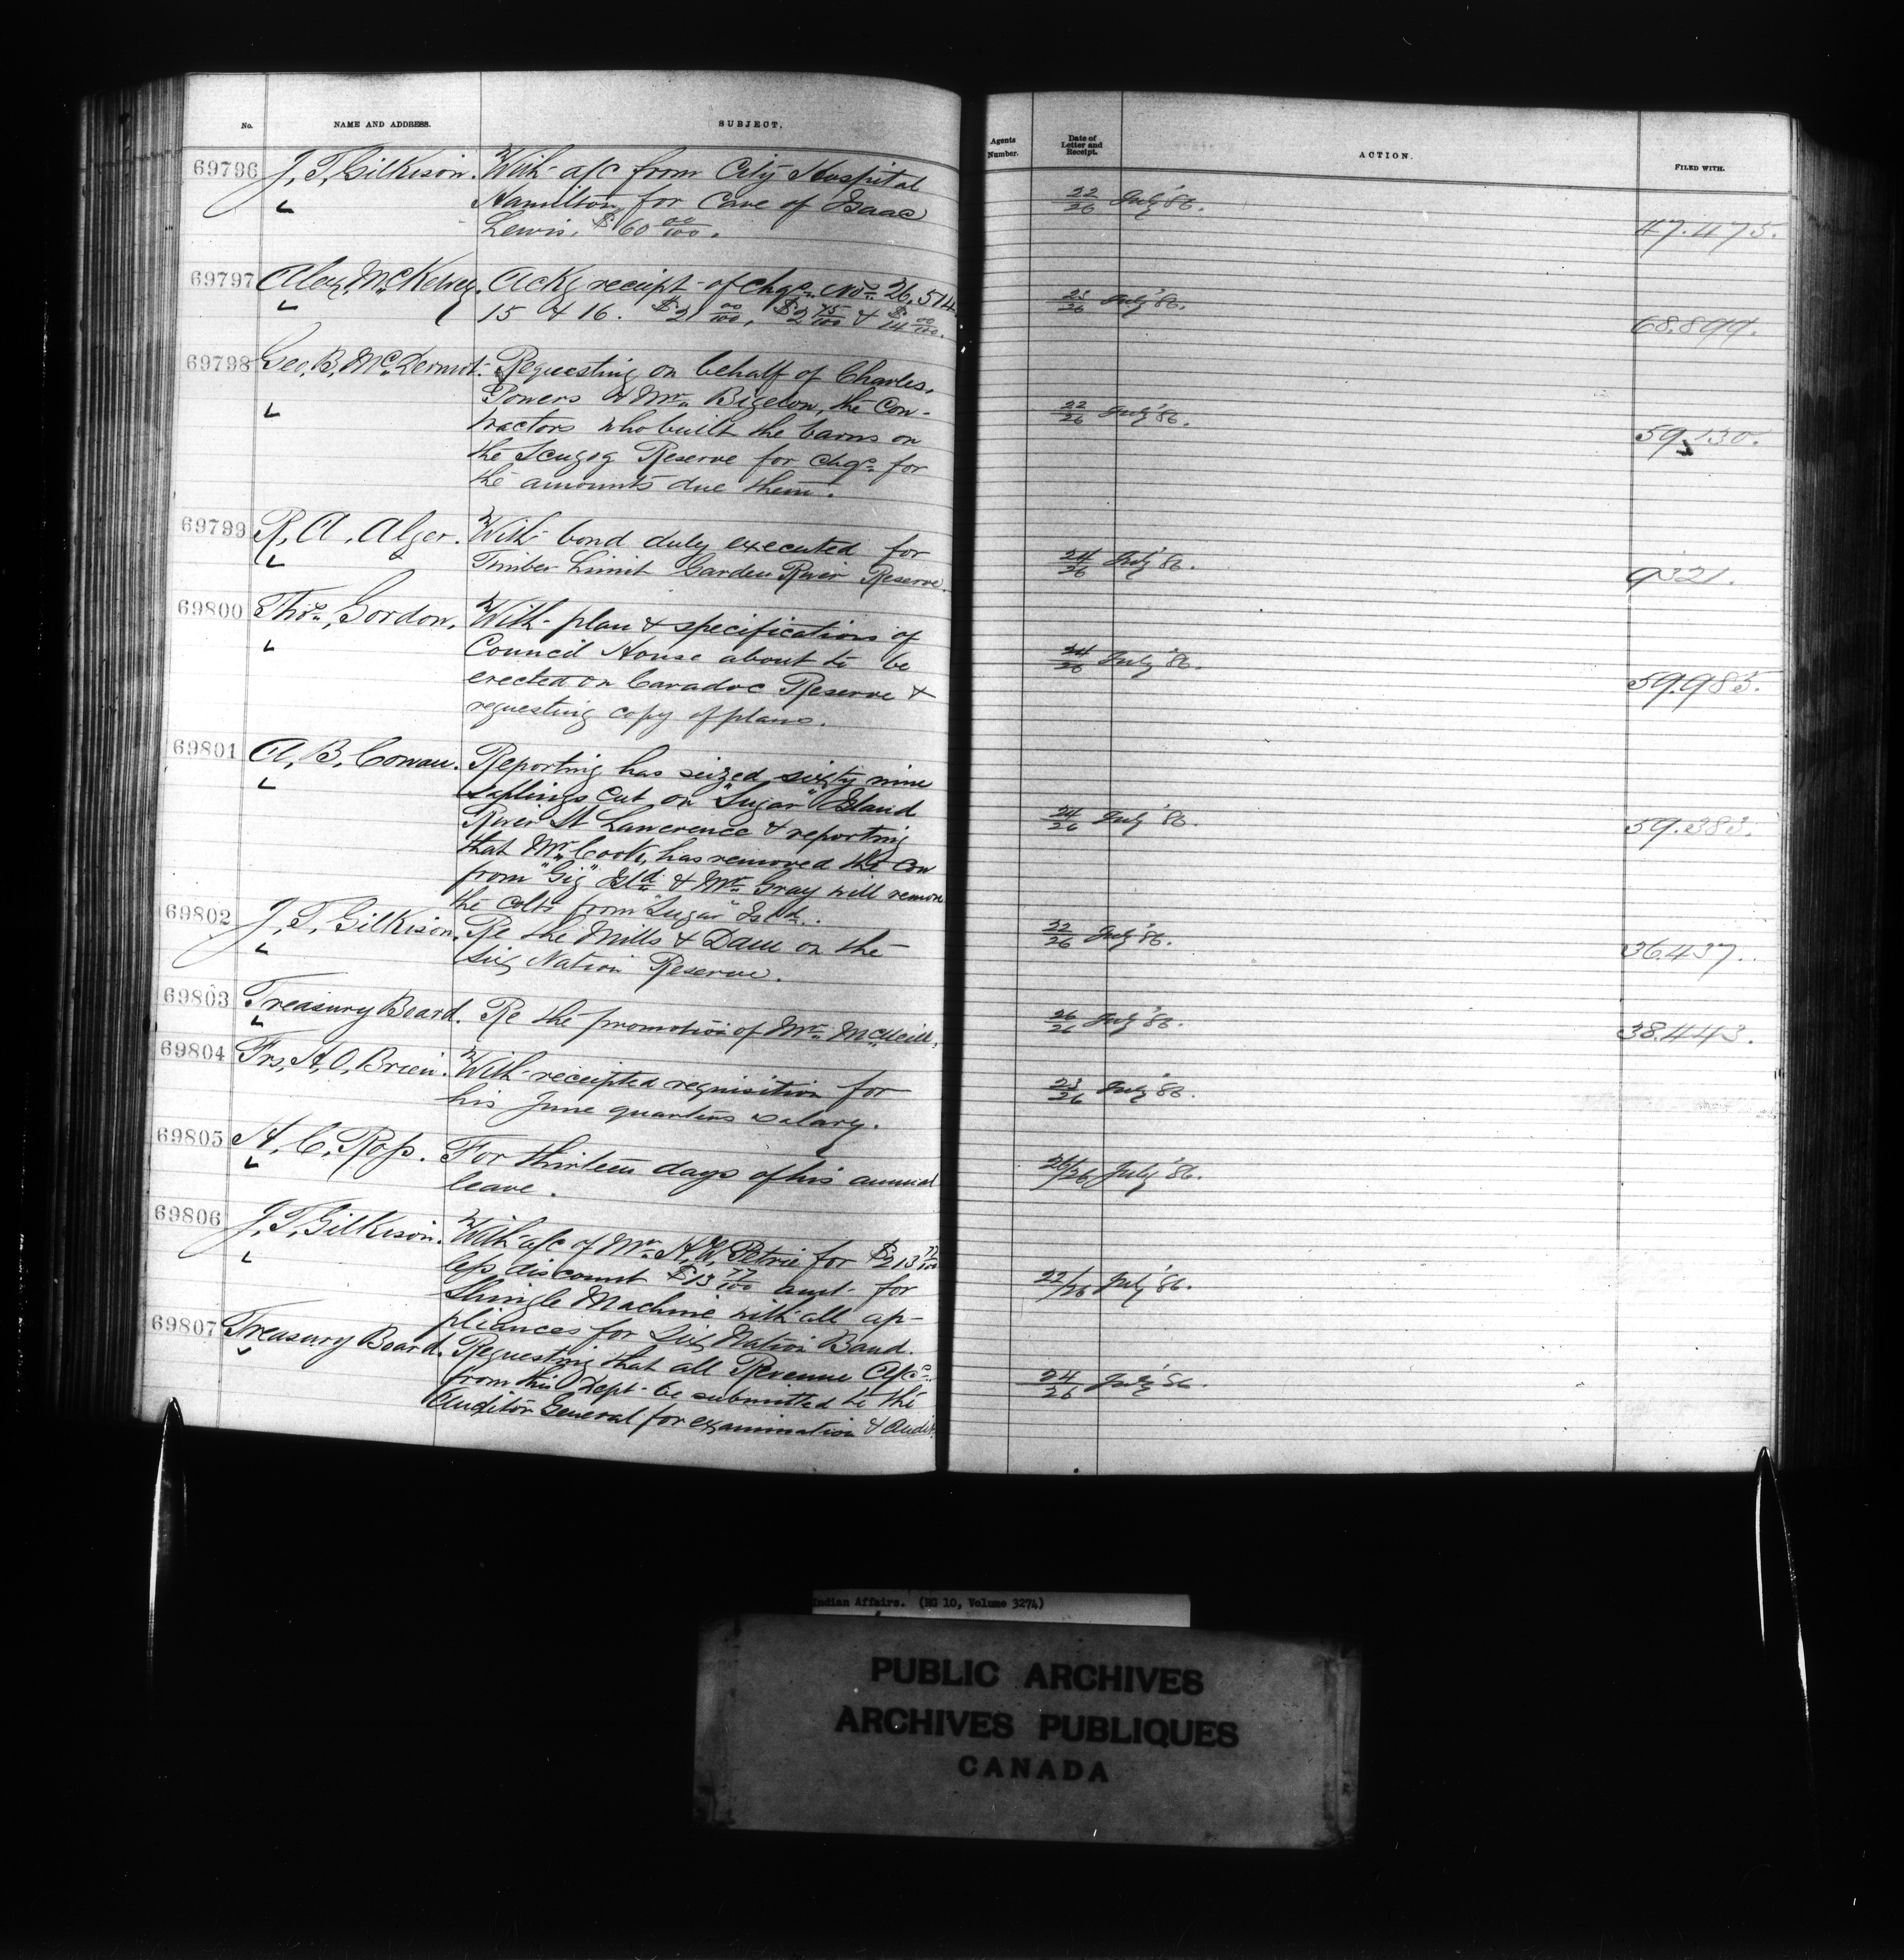 No. NAME AND ADDRESS. SUBJECT.
69796 J. T. Gilkison. With a/c from City Hospital
Hamilton, for Care of Isaac
Lewis. $60 00/100.
69797 Alex McKelvey. Ackg receipt of chqs. Nos. 26,514
15 & 16. $2 00/100, $2 75/100 & $14 00/100.
69798 Geo. B. McDermot. Requesting on behalf of Charles
Powers & Mr. Bigelow, the Con-
tractors who built the barns on
the Scugog Reserve for chqs. for
the amounts due them.
69799 R. A. Alger. With bond duly executed for
Timber Limit Garden River Reserve.
69800 Thos. Gordon. With plan & specifications of
Council House about to be
erected on Caradoc Reserve &
requesting copy of plans.
69801 A. B. Cowan. Reporting has seized sixty nine
saplings cut on "Sugar" Island
River St Lawerence & reporting
that Mr. Cook, has removed the Cow
from "Gig" Isld. & Mr. Gray will remove
the colts from "Sugar" Isld.
69802 J. T. Gilkison. Re the Mills & Dam on the
Six Nation Reserve.
69803 Treasury Board. Re the promotion of Mr. McNeill.
69804 Frs. H. O'Brien. With receipted requisition for
his June quarters salary.
69805 A. C. Ross. For thirteen days of his annual
leave.
69806 J. T. Gilkison. With a/c of Mr. H. W. Petrie for $213 77/100
less discount $13 77/100 amt. for
Shingle Machine with all ap-
pliances for Six Nation Band.
69807 Treasury Board. Requesting that all Revenue A/cs.
from this Dept. be submitted to the
Auditor General for examination & Audit.
Agents Number. Date of Letter and Receipt. ACTION. FILED WITH.
22/26 July '86. 47.475.
23/26 July '86. 68.899.
22/26 July '86. 59.130.
24/26 July '86. 9321.
24/26 July '86. 59.985.
24/26 July '86. 59.383.
22/26 July '86. 36.437.
26/26 July '86. 38.443.
23/26 July '86.
26/26 July '86.
22/26 July '86.
24/26 July '86.
Indian Affairs. (RG 10, Volume 3274)
PUBLIC ARCHIVES
ARCHIVES PUBLIQUES
CANADA